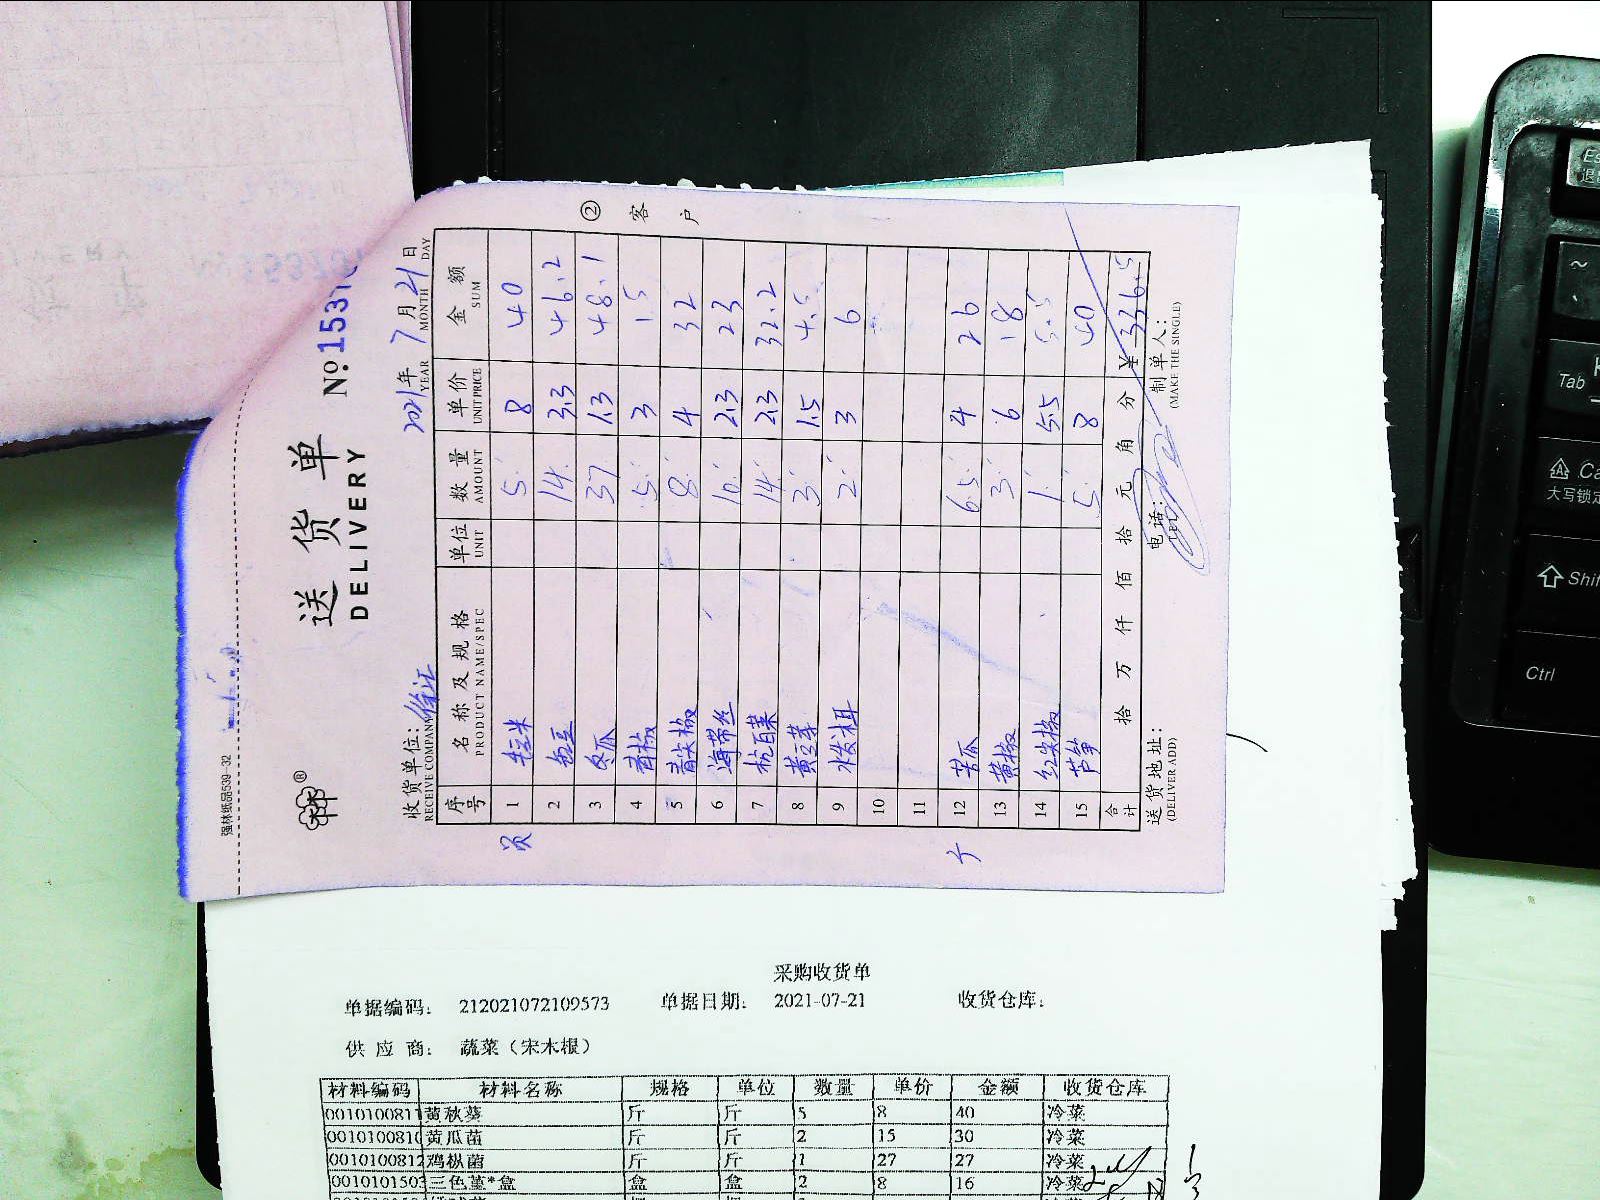 强林纸品539-32
送货单
DELIVERY
№ 153
收货单位：
RECEIVE COMPANY
2021年 7月 21日
YEAR MONTH DAY
序号 名称及规格 单位 数量 单价 金额
PRODUCT NAME/SPEC UNIT AMOUNT UNIT PRICE SUM
1 5 8 40
2 14 3.3 46.2
3 冬瓜 37 1.3 48.1
4 青椒 5 3 15
5 青尖椒 8 4 32
6 海带丝 10 2.3 23
7 杭白菜 14 2.3 32.2
8 黄豆芽 3 1.5 4.5
9 水发木耳 2 3 6
10
11
12 苦瓜 6.5 4 26
13 黄椒 3 6 18
14 红尖椒 1 5.5 5.5
15 芦笋 5 8 40
合计 拾 万 仟 佰 拾 元 角 分 ¥ 336.5
送货地址： 电话： 制单人：
(DELIVER ADD) (MAKE THE SINGLE)
② 客户
采购收货单
单据编码： 212021072109573 单据日期： 2021-07-21 收货仓库：
供应商： 蔬菜（宋木根）
材料编码 材料名称 规格 单位 数量 单价 金额 收货仓库
0010100811 黄秋葵 斤 斤 5 8 40 冷菜
001010081 黄瓜苗 斤 斤 2 15 30 冷菜
0010100812 鸡枞菌 斤 斤 1 27 27 冷菜
0010101503 三色堇*盒 盒 盒 2 8 16 冷菜
Es
~
Tab
Ca
大写锁定
Shif
Ctrl